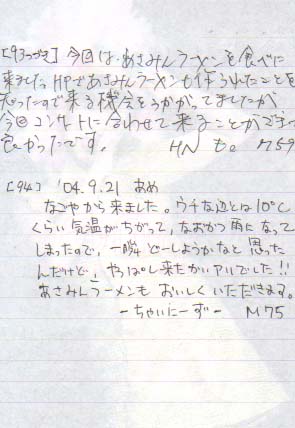 [93つづき] 今回は、あさみんラーメンを食べに
来ました。HPであさみんラーメンも作られたことを
知ったので来る機会をうかがってましたが
今回コンサートに合わせて来ることができて
良かったです。 HN も。 M59
[94] '04.9.21 あめ
なごやから来ました。ウチな辺とは10℃
くらい気温がちがって、なおかつ雨になって
しまったので、一瞬どーしようかなと思った
んだけど、やっぱし来たかいアルでした!!
あさみんラーメンもおいしくいただきます。
-ちゃいにーず- M75